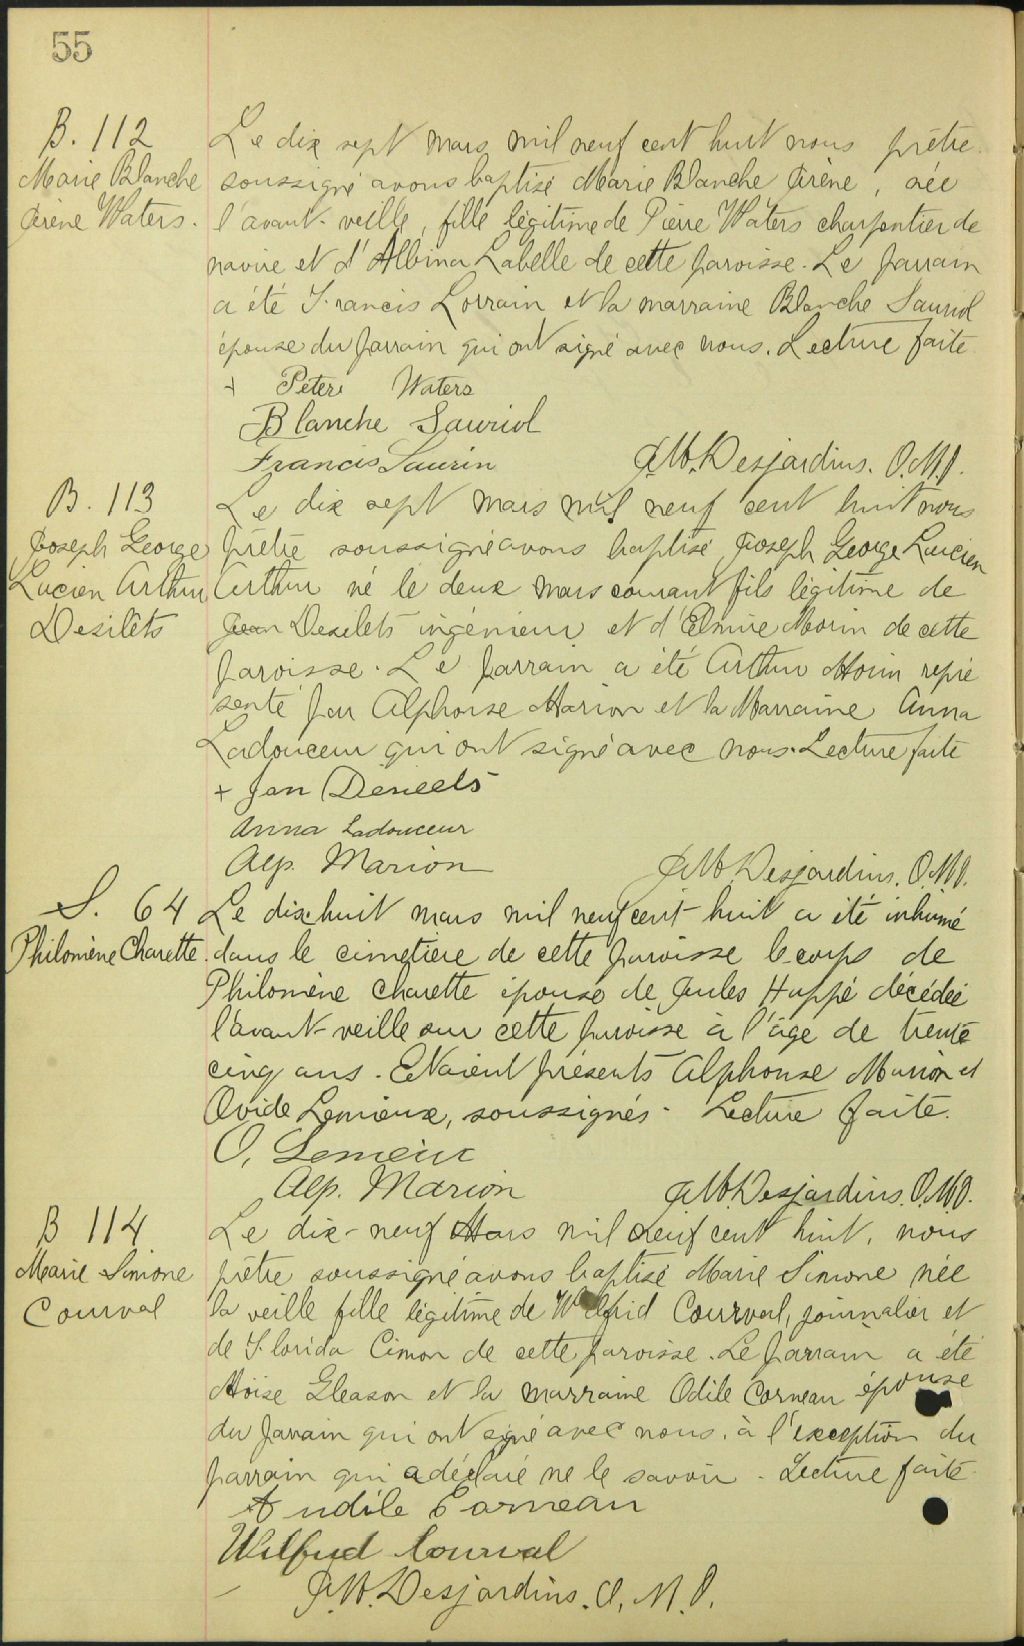 55
B. 112
Marie Blanche
Irène Waters.
Le dix sept mars mil neuf cent huit nous prêtre
soussigné avons baptisé Marie Blanche Irène, née
l'avant-veille, fille légitime de Pierre Waters charpentier de
navire et d'Albina Labelle de cette paroisse. Le parrain
a été Francis Lorrain et la marraine Blanche Sauriol
épouse du parrain qui ont signé avec nous. Lecture faite
+ Peter Waters
Blanche Sauriol
Francis Laurin
J.M. Desjardins. O.M.I.
B. 113
Joseph George
Lucien Arthur
Desilets
Le dix sept mars mil neuf cent huit nous
prêtre soussigné avons baptisé Joseph George Lucien
Arthur né le deux mars courant fils légitime de
Jean Desilets ingénieur et d'Elmire Morin de cette
paroisse. Le parrain a été Arthur Morin repré
senté par Alphonse Marion et la Marraine Anna
Ladouceur qui ont signé avec nous. Lecture faite
+ Jan
Anna Ladouceur
Alp. Marion
J.M. Desjardins. O.M.I.
S. 64
Philomène Charette.
Le dix-huit mars mil neuf cent-huit a été inhumé
dans le cimetière de cette paroisse le corps de
Philomène Charette épouse de Jules Huppé décédée
l'avant-veille sur cette paroisse à l'âge de trente
cinq ans. Etaient présents Alphonse Marion et
Ovide Lemieux, soussignés. Lecture faite.
O. Lemeiux
Alp. Marion
J.M. Desjardins. O.M.I.
B 114
Marie Simone
Courval
Le dix-neuf Mars mil neuf cent huit, nous
prêtre soussigné avons baptisé Marie Simone née
la veille fille légitime de Wilfrid Courval, journalier et
de Florida Cimon de cette paroisse. Le parrain a été
Moïse Gleason et la marraine Odile Corneau épouse
du parrain qui ont signé avec nous, à l'exception du
parrain qui a déclaré ne le savoir. Lecture faite.
Audile Corneau
Wilfrid Courval
J.M. Desjardins. O.M.I.